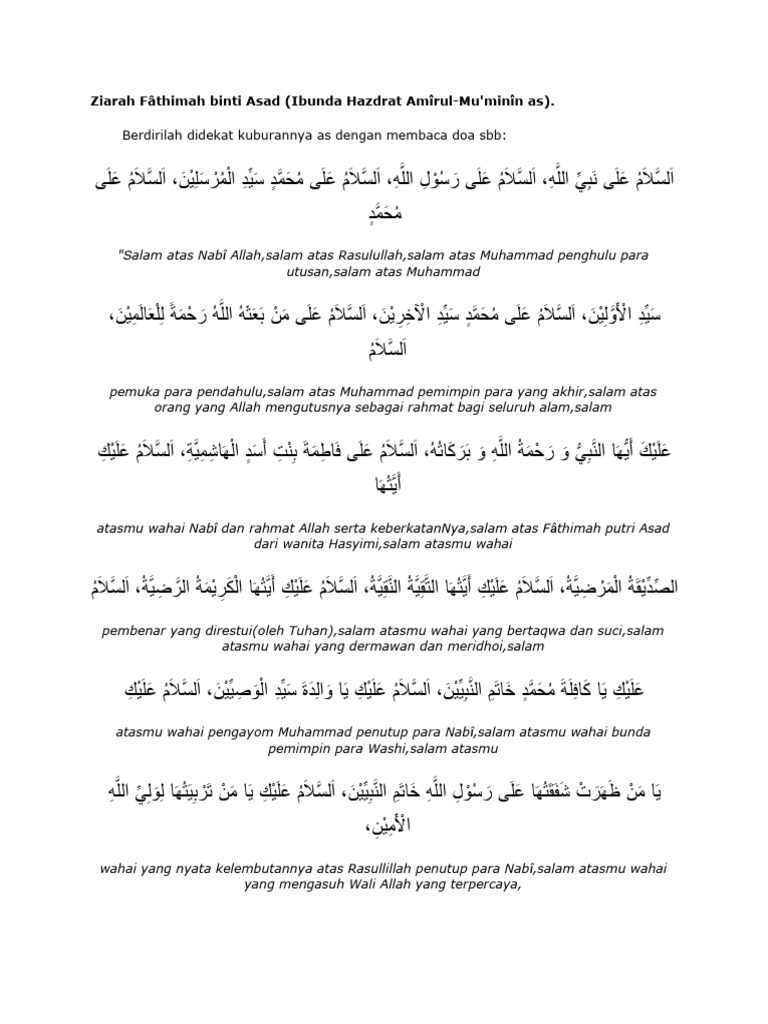 Ziarah Fâthimah binti Asad (Ibunda Hazdrat Amîrul-Mu'minîn as).
Berdirilah didekat kuburannya as dengan membaca doa sbb:
اَلسَّلاَمُ عَلَى نَبِيِّ اللَّهِ، اَلسَّلاَمُ عَلَى رَسُوْلِ اللَّهِ، اَلسَّلاَمُ عَلَى مُحَمَّدٍ سَيِّدِ الْمُرْسَلِيْنَ، اَلسَّلاَمُ عَلَى
مُحَمَّدٍ
"Salam atas Nabî Allah,salam atas Rasulullah,salam atas Muhammad penghulu para
utusan,salam atas Muhammad
سَيِّدِ الْأَوَّلِيْنَ، اَلسَّلاَمُ عَلَى مُحَمَّدٍ سَيِّدِ الْآخِرِيْنَ، اَلسَّلاَمُ عَلَى مَنْ بَعَثَهُ اللَّهُ رَحْمَةً لِلْعَالَمِيْنَ،
اَلسَّلاَمُ
pemuka para pendahulu,salam atas Muhammad pemimpin para yang akhir,salam atas
orang yang Allah mengutusnya sebagai rahmat bagi seluruh alam,salam
عَلَيْكَ أَيُّهَا النَّبِيُّ وَ رَحْمَةُ اللَّهِ وَ بَرَكَاتُهُ، اَلسَّلاَمُ عَلَى فَاطِمَةَ بِنْتِ أَسَدٍ الْهَاشِمِيَّةِ، اَلسَّلاَمُ عَلَيْكِ
أَيَّتُهَا
atasmu wahai Nabî dan rahmat Allah serta keberkatanNya,salam atas Fâthimah putri Asad
dari wanita Hasyimi,salam atasmu wahai
الصِّدِّيْقَةُ الْمَرْضِيَّةُ، اَلسَّلاَمُ عَلَيْكِ أَيَّتُهَا التَّقِيَّةُ النَّقِيَّةُ، اَلسَّلاَمُ عَلَيْكِ أَيَّتُهَا الْكَرِيْمَةُ الرَّضِيَّةُ، اَلسَّلاَمُ
pembenar yang direstui(oleh Tuhan),salam atasmu wahai yang bertaqwa dan suci,salam
atasmu wahai yang dermawan dan meridhoi,salam
عَلَيْكِ يَا كَافِلَةَ مُحَمَّدٍ خَاتَمِ النَّبِيِّيْنَ، اَلسَّلاَمُ عَلَيْكِ يَا وَالِدَةَ سَيِّدِ الْوَصِيِّيْنَ، اَلسَّلاَمُ عَلَيْكِ
atasmu wahai pengayom Muhammad penutup para Nabî,salam atasmu wahai bunda
pemimpin para Washi,salam atasmu
يَا مَنْ ظَهَرَتْ شَفَقَتُهَا عَلَى رَسُوْلِ اللَّهِ خَاتَمِ النَّبِيِّيْنَ، اَلسَّلاَمُ عَلَيْكِ يَا مَنْ تَرْبِيَتُهَا لِوَلِيِّ اللَّهِ
الْأَمِيْنِ،
wahai yang nyata kelembutannya atas Rasullillah penutup para Nabî,salam atasmu wahai
yang mengasuh Wali Allah yang terpercaya,